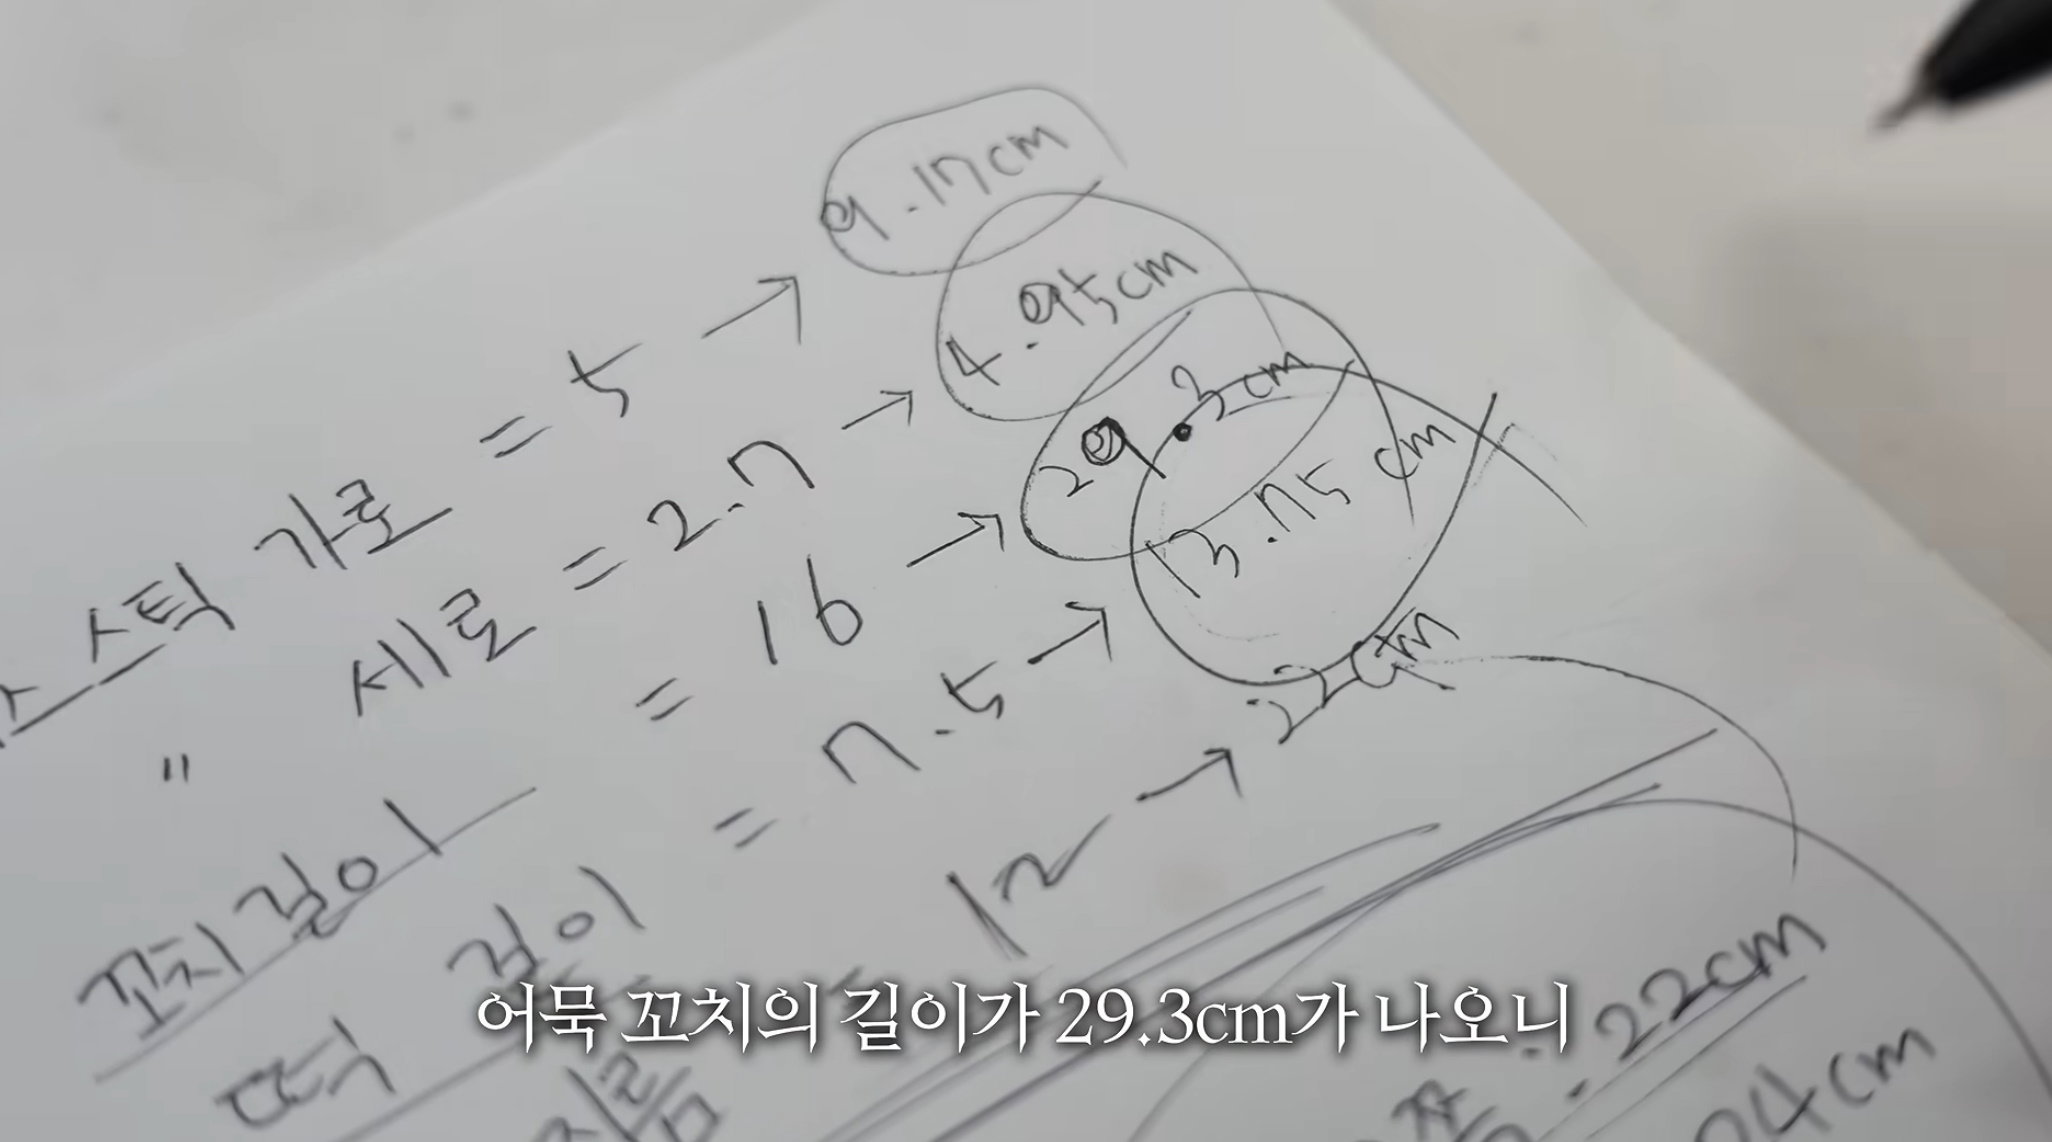 스틱 가로 = 5 → 9.17cm
" 세로 = 2.7 → 4.95cm
꼬치 길이 = 16 → 29.3cm
떡 길이 = 7.5 → 13.75cm
지름 = 12 → 22cm
: 22cm
04cm
어묵 꼬치의 길이가 29.3cm가 나오니